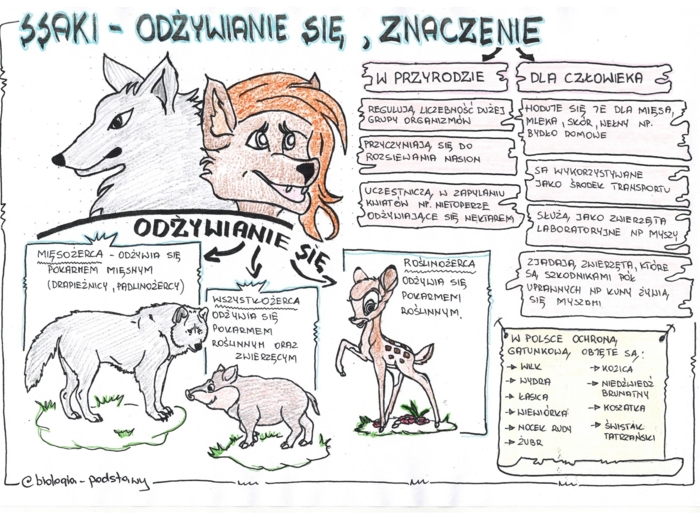 SSAKI - ODŻYWIANIE SIĘ, ZNACZENIE
W PRZYRODZIE
REGULUJĄ LICZEBNOŚĆ DUŻEJ
GRUPY ORGANIZMÓW
PRZYCZYNIAJĄ SIĘ DO
ROZSIEWANIA NASION
UCZESTNICZĄ W ZAPYLANIU
KWIATÓW NP. NIETOPERZE
ODŻYWIAJĄCE SIĘ NEKTAREM
DLA CZŁOWIEKA
HODUJE SIĘ JE DLA MIĘSA,
MLEKA, SKÓR, WEŁNY NP.
BYDŁO DOMOWE
SĄ WYKORZYSTYWANE
JAKO ŚRODEK TRANSPORTU
SŁUŻĄ JAKO ZWIERZĘTA
LABORATORYJNE NP MYSZY
ZJADAJĄ ZWIERZĘTA, KTÓRE
SĄ SZKODNIKAMI PÓL
UPRAWNYCH NP KUNY ŻYWIĄ
SIĘ MYSZAMI
ODŻYWIANIE SIĘ
MIĘSOŻERCA - ODŻYWIA SIĘ
POKARMEM MIĘSNYM
(DRAPIEŻNICY, PADLINOŻERCY)
WSZYSTKOŻERCA
ODŻYWIA SIĘ
POKARMEM
ROŚLINNYM ORAZ
ZWIERZĘCYM
ROŚLINOŻERCA
ODŻYWIA SIĘ
POKARMEM
ROŚLINNYM.
W POLSCE OCHRONĄ
GATUNKOWĄ OBJĘTE SĄ:
→ WILK
→ WYDRA
→ ŁASICA
→ WIEWIÓRKA
→ NOCEK RUDY
→ ŻUBR
→ KOZICA
→ NIEDŹWIEDŹ
BRUNATNY
→ KOSZATKA
→ ŚWISTAK
TATRZAŃSKI
@biologia-podstawy